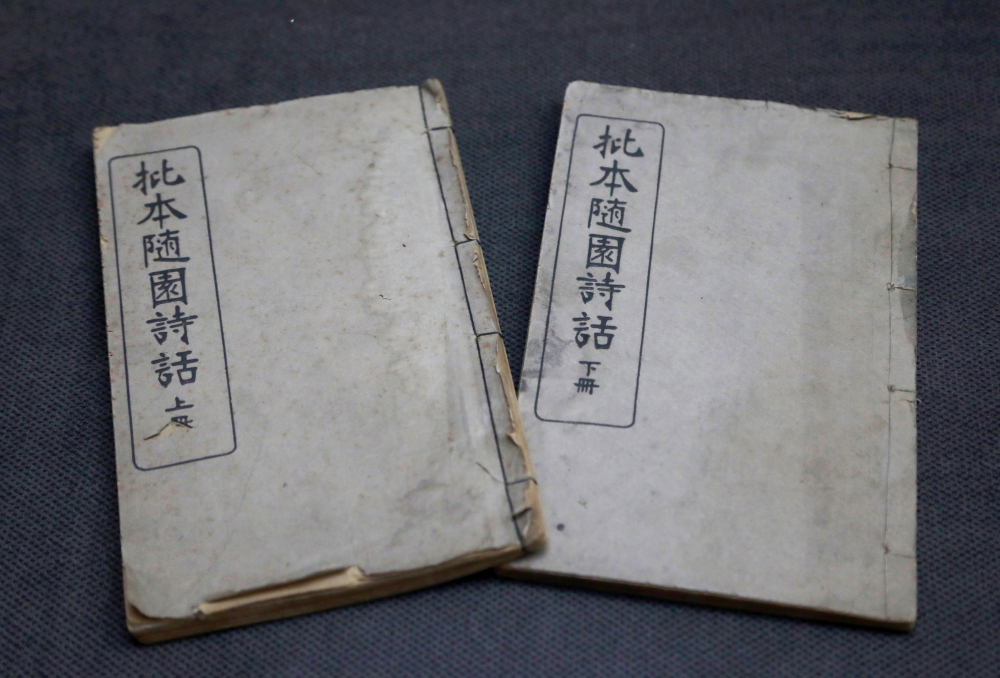 批本随園詩話 上冊
批本随園詩話 下冊